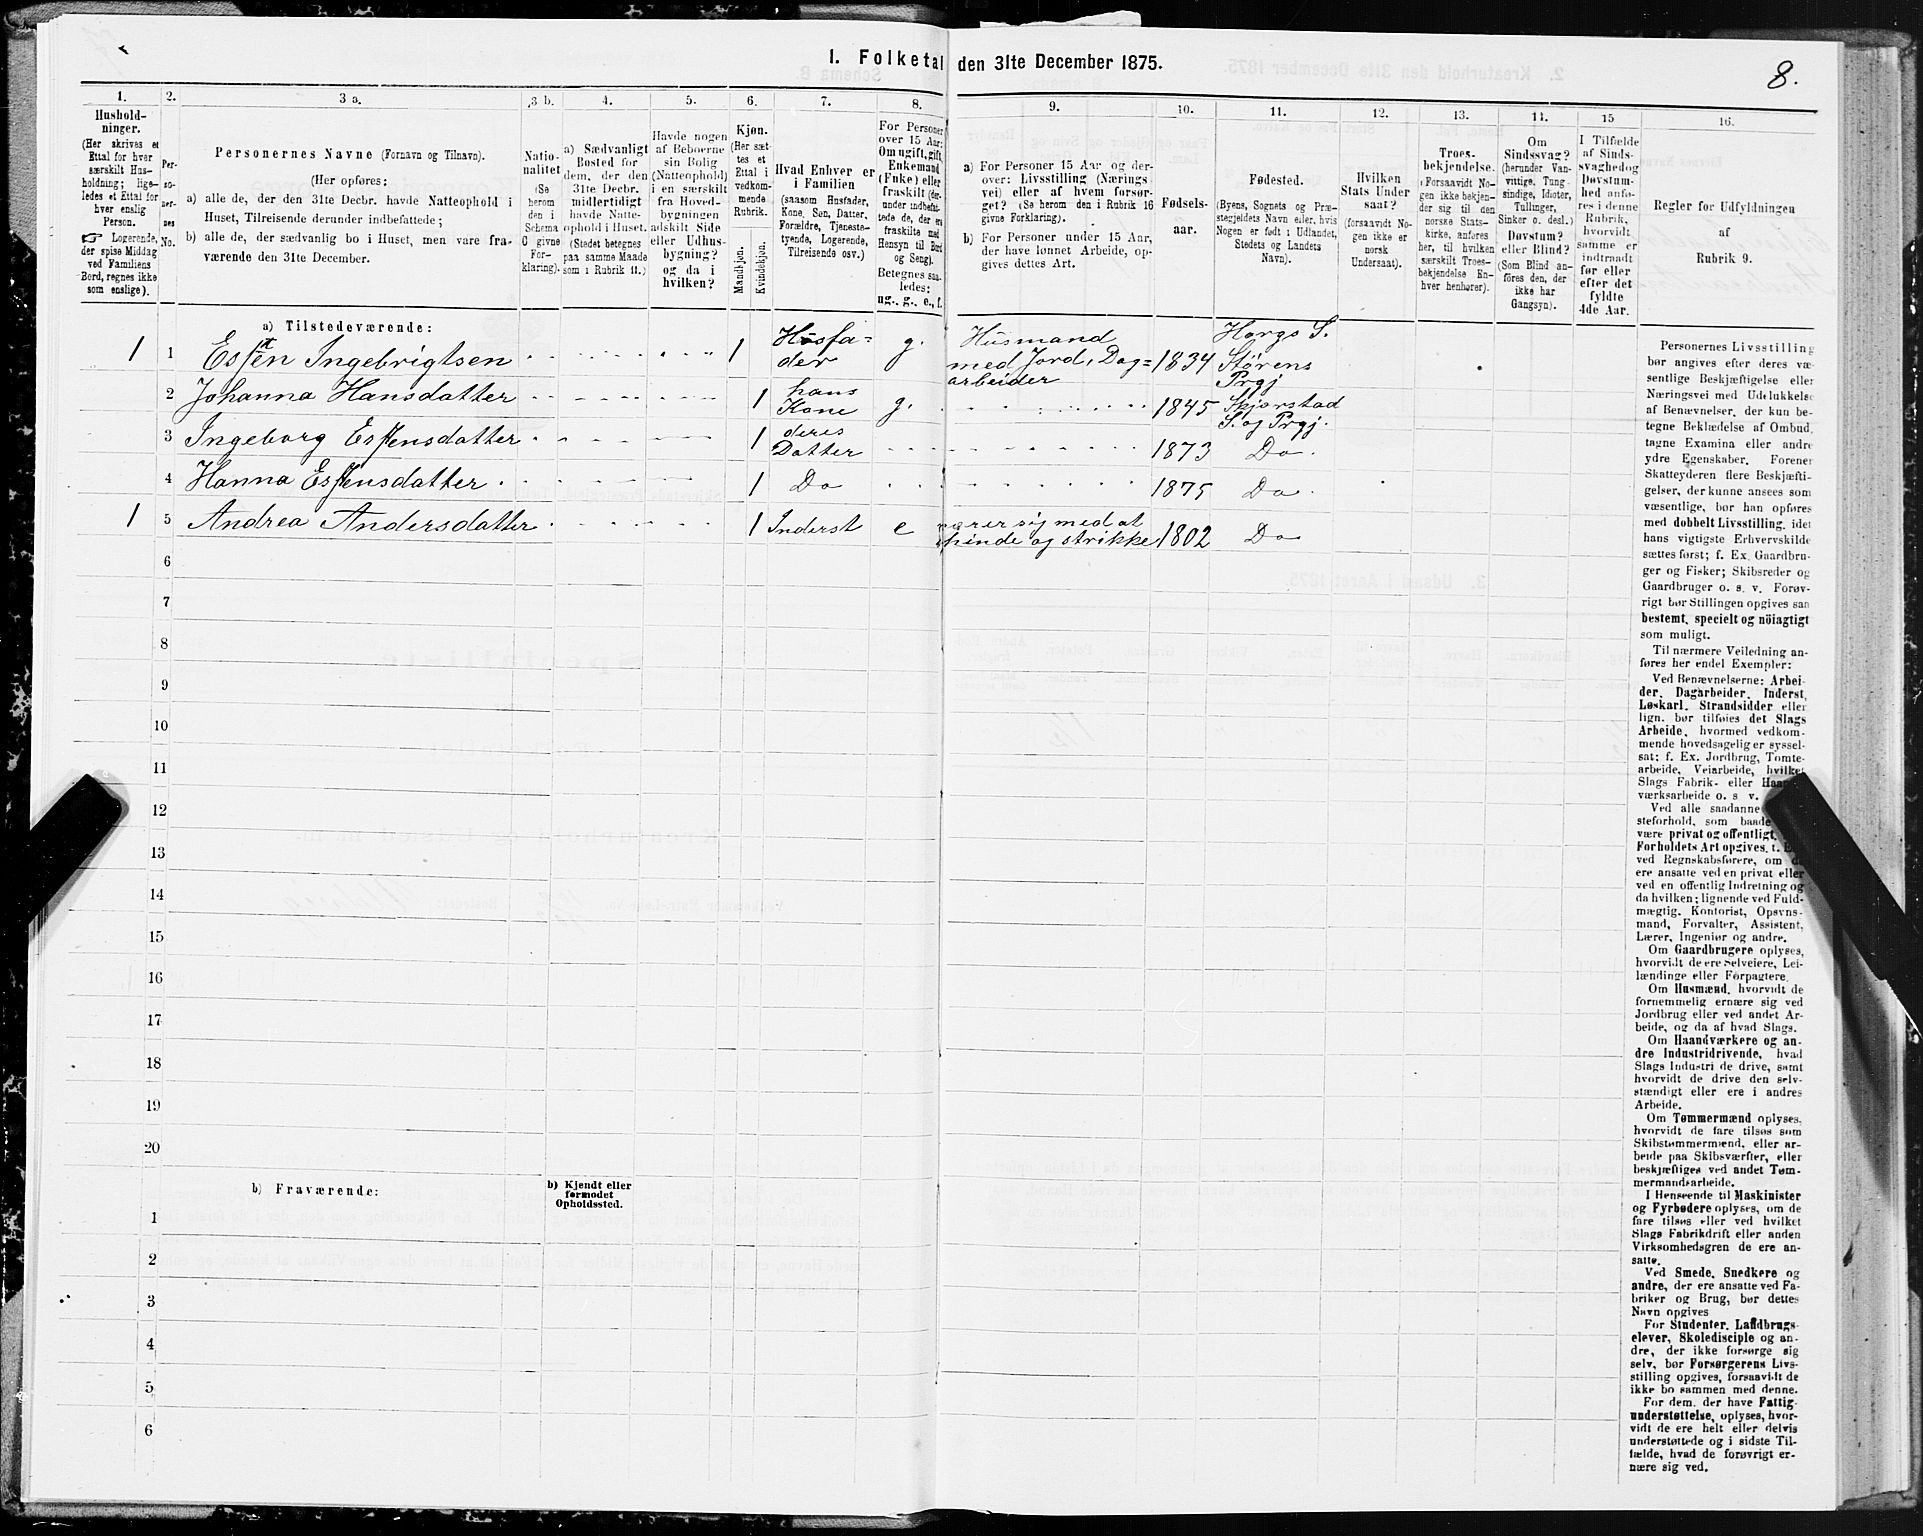 1. Folketal den 31te December 1875.
8.
1.
2.
3 a.
3 b.
4.
5.
6.
7.
8.
9.
10.
11.
12.
13.
14.
15
16.
Hushold-
ninger.
(Her skrives et
Ettal for hver
særskilt Hus-
holdning; lige-
ledes et Ettal for
hver enslig
Person.
☞ Logerende,
der spise Middag
ved Familiens
Bord, regnes ikke
som enslige).
Per-
so-
ner-
nes
No.
Personernes Navne (Fornavn og Tilnavn).
(Her opføres:
a) alle de, der den 31te Decbr. havde Natteophold i
Huset, Tilreisende derunder indbefattede;
b) alle de, der sædvanlig bo i Huset, men vare fra-
værende den 31te December.
Natio-
nalitet
(Se
herom
den i
Schema
C givne
For-
klaring).
a) Sædvanligt
Bosted for
dem, der den
31te Decbr.
midlertidigt
havde Natte-
ophold i Huset.
(Stedet betegnes
paa samme Maade
som i Rubrik 11.)
Havde nogen
af Beboerne
sin Bolig
(Natteophold)
i en særskilt
fra Hoved-
bygningen
adskilt Side
eller Udhus-
bygning?
og da i
hvilken?
Kjøn.
(Her sæt-
tes et
Ettal i
vedkom-
mende
Rubrik.
Mandkjøn.
Kvindekjøn.
Hvad Enhver er
i Familien
(saasom Husfader,
Kone, Søn, Datter,
Forældre, Tjeneste-
tyende, Logerende,
Tilreisende osv.)
For Personer
over 15 Aar:
Om ugift, gift,
Enkemand
(Enke) eller
fraskilt (der-
under indbefat-
tede de, der ere
fraskilte med
Hensyn til Bord
og Seng).
Betegnes saa-
ledes:
ug., g., e., f.
a) For Personer 15 Aar og der-
over: Livsstilling (Nærings-
vei) eller af hvem forsør-
get? (Se herom den i Rubrik 16
givne Forklaring).
b) For Personer under 15 Aar,
der have lønnet Arbeide, op-
gives dettes Art.
Fødsels-
aar.
Fødested.
(Byens, Sognets og Præ-
stegjeldets Navn eller, hvis
Nogen er født i Udlandet,
Stedets og Landets
Navn).
Hvilken
Stats Under
saat?
(forsaavidt No-
gen ikke er
norsk
Undersaat).
Troes-
bekjendelse.
(Forsaavidt No-
gen ikke bekjen-
der sig til den
norske Stats-
kirke, anføres
her, til hvilken
særskilt Troes-
bekjendelse En-
hver henhører).
Om
Sindssvag?
(herunder Van-
vittige, Tung-
sindige, Idioter,
Tullinger,
Sinker o. desl.)
Døvstum?
eller Blind?
(Som Blind an-
føres den, der
ikke har
Gangsyn).
I Tilfælde
af Sinds-
svaghed og
Døvstum-
hed anfø-
res i denne
Rubrik,
hvorvidt
samme er
indtraadt
før eller
efter det
fyldte
4de Aar.
Regler for Udfyldningen
af
Rubrik 9.
a) Tilstedeværende:
1 1 Esten Ingebrigtsen 1 Husfa=
der g. Husmand
med Jord, Dag=
arbeider 1834 Horgs S.
Størens
Prgj
2 Johanna Hansdatter 1 hans
Kone g. 1845 Skjørstad
S. og Prgj.
3 Ingeborg Estensdatter 1 deres
Datter 1873 Do.
4 Hanna Estensdatter 1 Do 1875 Do.
1 5 Andrea Andersdatter 1 Inderst e nærer sig med at
spinde og strikke 1802 Do
6
7
8
9
10
11
12
13
14
15
16
17
18
19
20
b) Fraværende:
b) Kjendt eller
formodet
Opholdssted.
1
2
3
4
5
6
Personernes Livsstilling
bør angives efter deres væ-
sentlige Beskjæftigelse eller
Næringsvei med Udelukkelse
af Benævnelser, der kun be-
tegne Beklædelse af Ombud,
tagne Examina eller andre
ydre Egenskaber. Forener
Skatteyderen flere Beskjæfti-
gelser, der kunne ansees som
væsentlige, bør han opføres
med dobbelt Livsstilling, idet
hans vigtigste Erhvervskilde
sættes først; f. Ex. Gaardbru-
ger og Fisker; Skibsreder og
Gaardbruger o. s. v. Forøv-
rigt bør Stillingen opgives saa
bestemt, specielt og nöiagtigt
som muligt.
Til nærmere Veiledning an-
føres her endel Exempler:
Ved Benævnelserne: Arbei-
der, Dagarbeider, Inderst,
Løskarl, Strandsidder eller
lign. bør tilføies det Slags
Arbeide, hvormed vedkom-
mende hovedsagelig er syssel-
sat; f. Ex. Jordbrug, Tomte-
arbeide, Veiarbeide, hvilket
Slags Fabrik- eller Haand-
værksarbeide o. s v.
Ved alle saadanne
steforhold, som baade
være privat og offentligt,
Forholdets Art opgives, f. Ex
ved Regnskabsførere, om de
ere ansatte ved en privat eller
ved en offentlig Indretning og
da hvilken; lignende ved Fuld-
mægtig, Kontorist, Opsyns-
mand, Forvalter, Assistent,
Lærer, Ingeniør og andre.
Om Gaardbrugere oplyses,
hvorvidt de ere Selveiere, Lei-
lændinge eller Forpagtere.
Om Husmænd, hvorvidt de
fornemmelig ernære sig ved
Jordbrug eller ved andet Ar-
beide, og da af hvad Slags.
Om Haandværkere og an-
dre Industridrivende, hvad
Slags Industri de drive, samt
hvorvidt de drive den selv-
stændigt eller ere i andres
Arbeide.
Om Tømmermænd oplyses,
hvorvidt de fare tilsøs som
Skibstømmermænd, eller ar-
beide paa Skibsværfter, eller
beskjæftiges ved andet Tøm-
mermandsarbeide.
I Henseende til Maskinister
og Fyrbødere oplyses, om de
fare tilsøs eller ved hvilket
Slags Fabrikdrift eller anden
Virksomhedsgren de ere an-
satte.
Ved Smede, Snedkere og
andre, der ere ansatte ved Fa-
briker og Brug, bør dettes
Navn opgives
For Studenter, Landbrugs-
elever, Skoledisciple og an-
dre, der ikke forsørge sig
selv, bør Forsørgerens Livs-
stilling opgives, forsaavidt de
ikke bo sammen med denne.
For dem, der have Fattig-
understøttelse, oplyses, hvor-
vidt de ere helt eller delvis
understøttede og i sidste Til-
fælde, hvad de forøvrigt er-
nære sig ved.